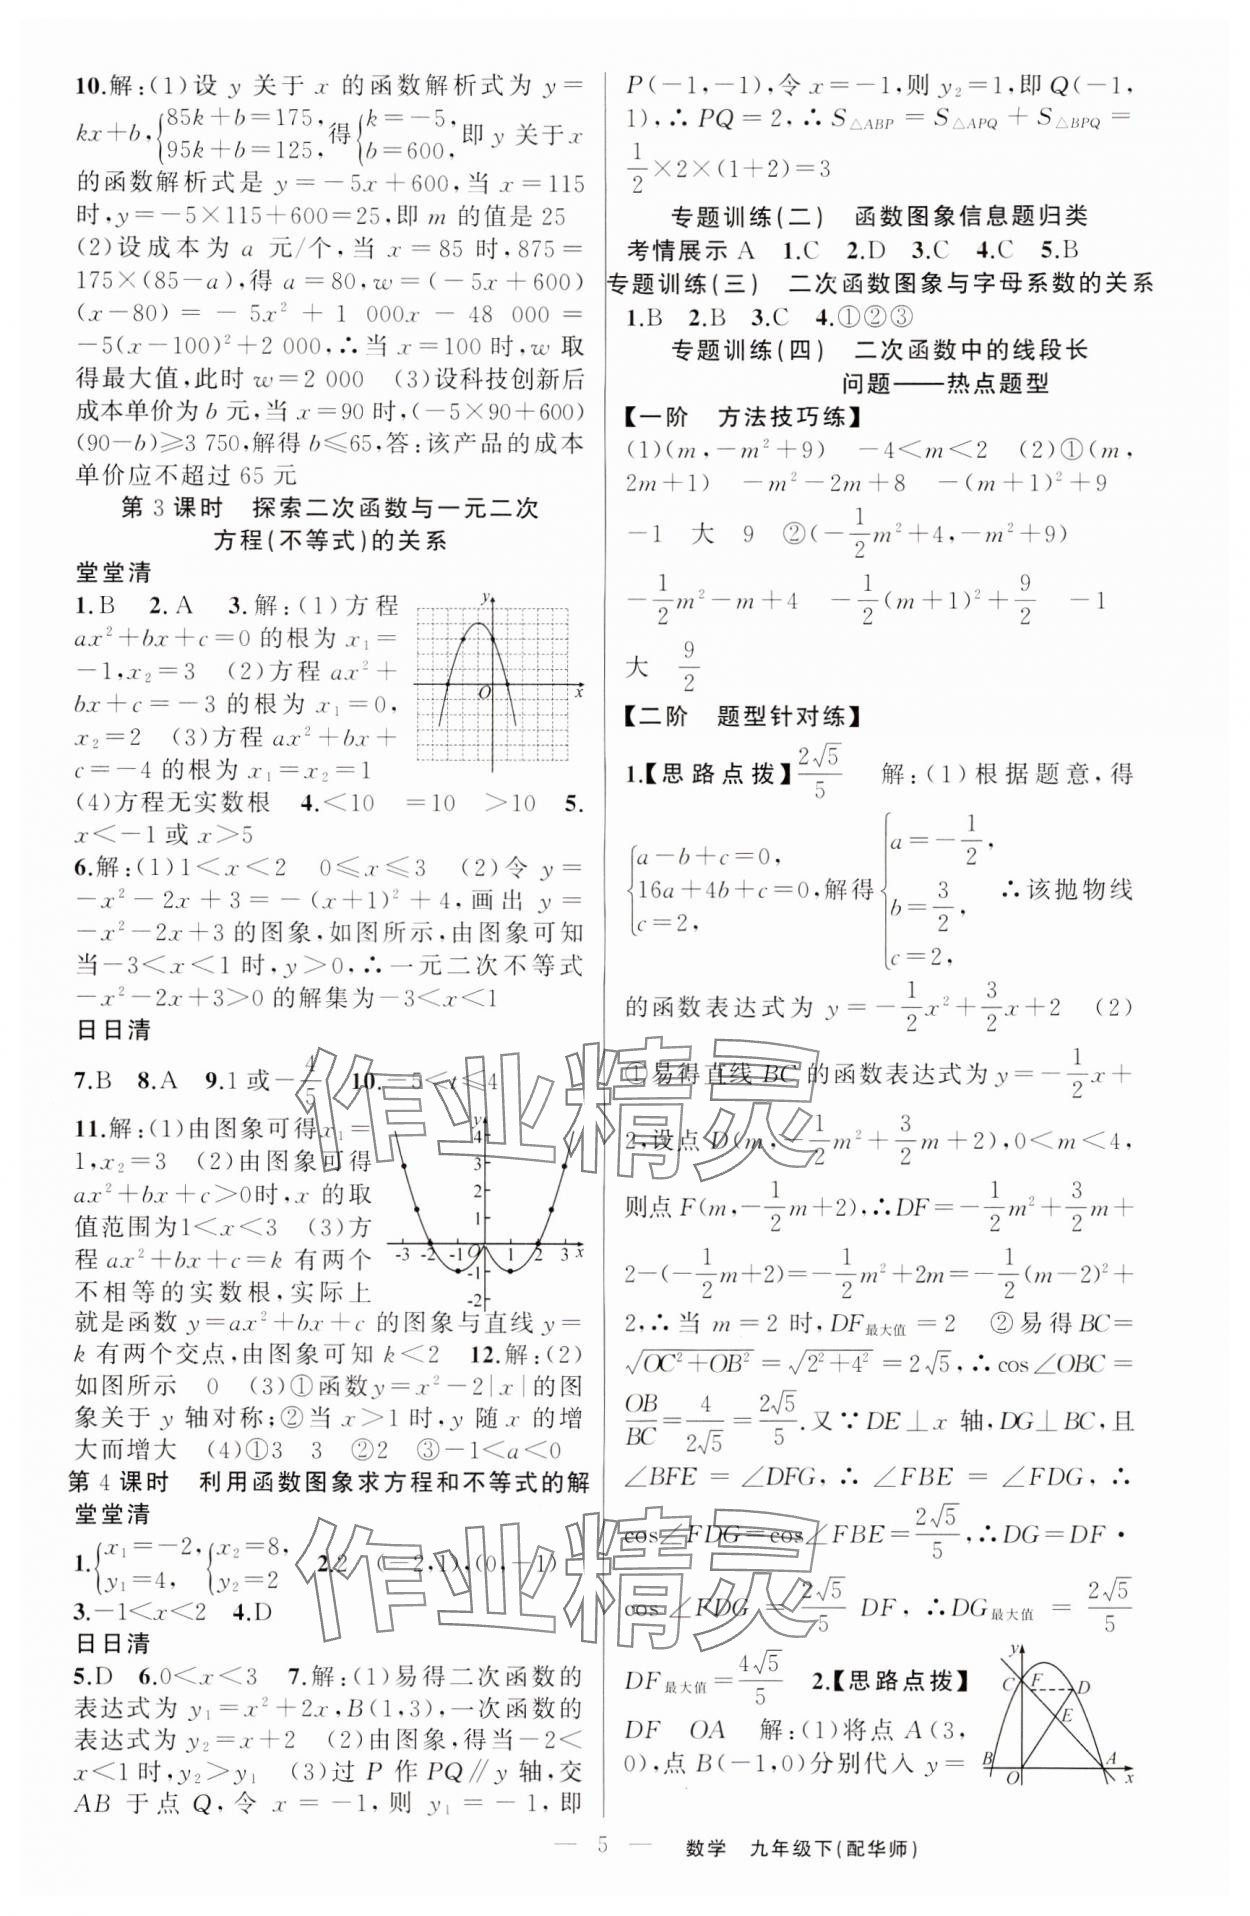 10.解:(1)设 y 关于 x 的函数解析式为 y=
kx+b,{85k+b=175, 95k+b=125,得{k=-5, b=600,即 y 关于 x
的函数解析式是 y=-5x+600,当 x=115
时,y=-5×115+600=25,即 m 的值是 25
(2)设成本为 a 元/个,当 x=85 时,875=
175×(85-a),得 a=80,w=(-5x+600)
(x-80)=-5x²+1 000x-48 000=
-5(x-100)²+2 000,∴当 x=100 时,w 取
得最大值,此时 w=2 000 (3)设科技创新后
成本单价为 b 元,当 x=90 时,(-5×90+600)
(90-b)≥3 750,解得 b≤65,答:该产品的成本
单价应不超过 65 元
第 3 课时 探索二次函数与一元二次
方程(不等式)的关系
堂堂清
1.B 2.A 3.解:(1)方程
ax²+bx+c=0 的根为 x₁=
-1,x₂=3 (2)方程 ax²+
bx+c=-3 的根为 x₁=0,
x₂=2 (3)方程 ax²+bx+
c=-4 的根为 x₁=x₂=1
y
O x
(4)方程无实数根 4.<10 =10 >10 5.
x<-1 或 x>5
6.解:(1)1<x<2 0≤x≤3 (2)令 y=
-x²-2x+3=-(x+1)²+4,画出 y=
-x²-2x+3 的图象,如图所示,由图象可知
当-3<x<1 时,y>0,∴一元二次不等式
-x²-2x+3>0 的解集为-3<x<1
日日清
7.B 8.A 9.1 或-4/5 10.-5<t≤4
11.解:(1)由图象可得 x₁=
1,x₂=3 (2)由图象可得
ax²+bx+c>0时,x 的取
值范围为1<x<3 (3)方
程 ax²+bx+c=k 有两个
不相等的实数根,实际上
y
4
3
2
1
-3 -2 -1 O 1 2 3 x
-1
-2
就是函数 y=ax²+bx+c 的图象与直线 y=
k 有两个交点,由图象可知 k<2 12.解:(2)
如图所示 0 (3)①函数y=x²-2|x|的图
象关于 y 轴对称;②当 x>1 时,y 随 x 的增
大而增大 (4)①3 3 ②2 ③-1<a<0
第 4 课时 利用函数图象求方程和不等式的解
堂堂清
1.{x₁=-2, y₁=4, {x₂=8, y₂=2 2.2 (-2,1),(0,-1)
3.-1<x<2 4.D
日日清
5.D 6.0<x<3 7.解:(1)易得二次函数的
表达式为 y₁=x²+2x,B(1,3),一次函数的
表达式为 y₂=x+2 (2)由图象,得当-2<
x<1时,y₂>y₁ (3)过 P 作 PQ∥y 轴,交
AB 于点 Q,令 x=-1,则 y₁=-1,即
P(-1,-1),令 x=-1,则 y₂=1,即 Q(-1,
1),∴PQ=2,∴S△ABP=S△APQ+S△BPQ=
1/2×2×(1+2)=3
专题训练(二) 函数图象信息题归类
考情展示 A 1.C 2.D 3.C 4.C 5.B
专题训练(三) 二次函数图象与字母系数的关系
1.B 2.B 3.C 4.①②③
专题训练(四) 二次函数中的线段长
问题——热点题型
【一阶 方法技巧练】
(1)(m,-m²+9) -4<m<2 (2)①(m,
2m+1) -m²-2m+8 -(m+1)²+9
-1 大 9 ②(-1/2m²+4,-m²+9)
-1/2m²-m+4 -1/2(m+1)²+9/2 -1
大 9/2
【二阶 题型针对练】
1.【思路点拨】2√5/5 解:(1)根据题意,得
{a-b+c=0, 16a+4b+c=0, c=2,解得{a=-1/2, b=3/2, c=2,∴该抛物线
的函数表达式为 y=-1/2x²+3/2x+2 (2)
①易得直线 BC 的函数表达式为 y=-1/2x+
2,设点 D(m,-1/2m²+3/2m+2),0<m<4,
则点 F(m,-1/2m+2),∴DF=-1/2m²+3/2m+
2-(-1/2m+2)=-1/2m²+2m=-1/2(m-2)²+
2,∴当 m=2 时,DF最大值=2 ②易得 BC=
√OC²+OB²=√2²+4²=2√5,∴cos∠OBC=
OB/BC=4/2√5=2√5/5.又∵DE⊥x 轴,DG⊥BC,且
∠BFE=∠DFG,∴∠FBE=∠FDG,∴
cos∠FDG=cos∠FBE=2√5/5,∴DG=DF·
cos∠FDG=2√5/5 DF,∴DG最大值=2√5/5
DF最大值=4√5/5 2.【思路点拨】
DF OA 解:(1)将点 A(3,
0),点 B(-1,0)分别代入 y=
y
C F D
E
B O A x
作业精灵
作业精灵
— 5 — 数学 九年级下(配华师)